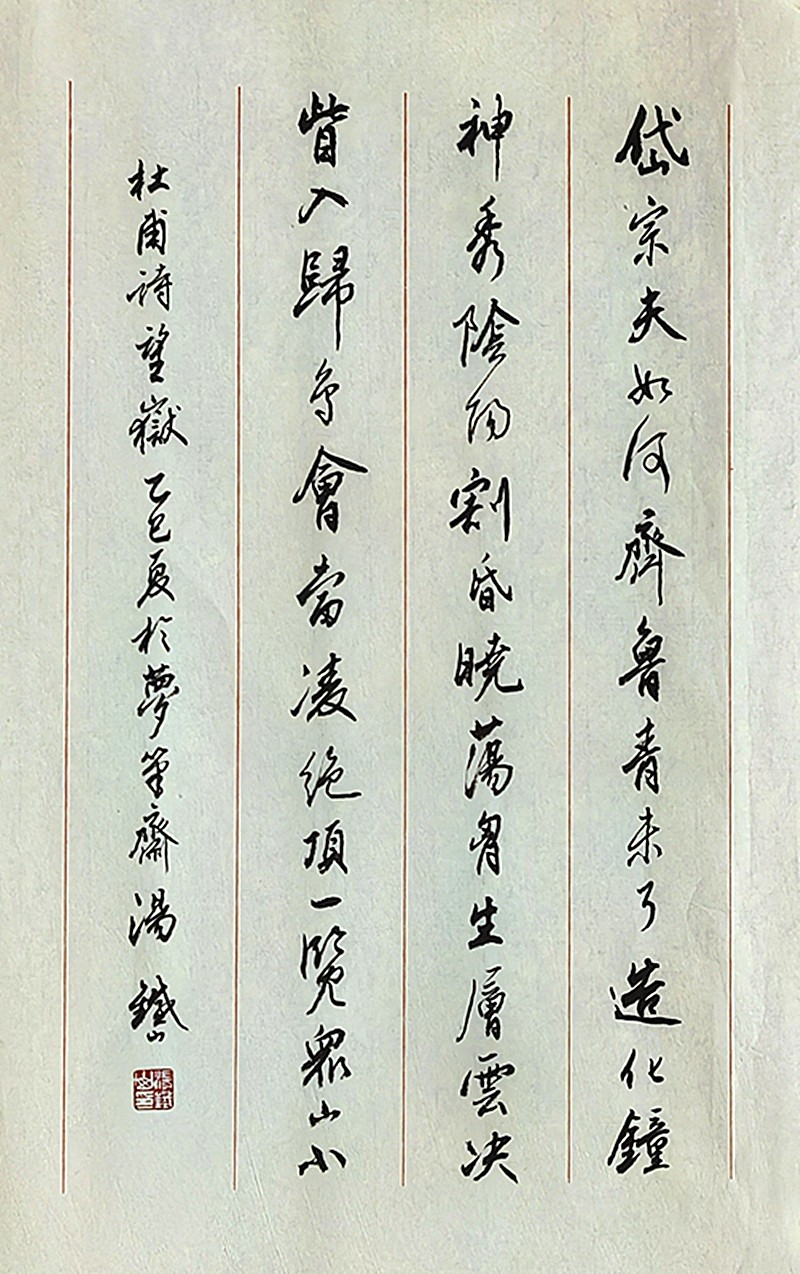 岱宗夫如何齊魯青未了造化鐘
神秀陰陽割昏曉蕩胷生層雲决
眥入歸鳥會當凌绝頂一覽眾山小
杜甫诗望嶽乙巳夏於夢筆齋湯鐵山